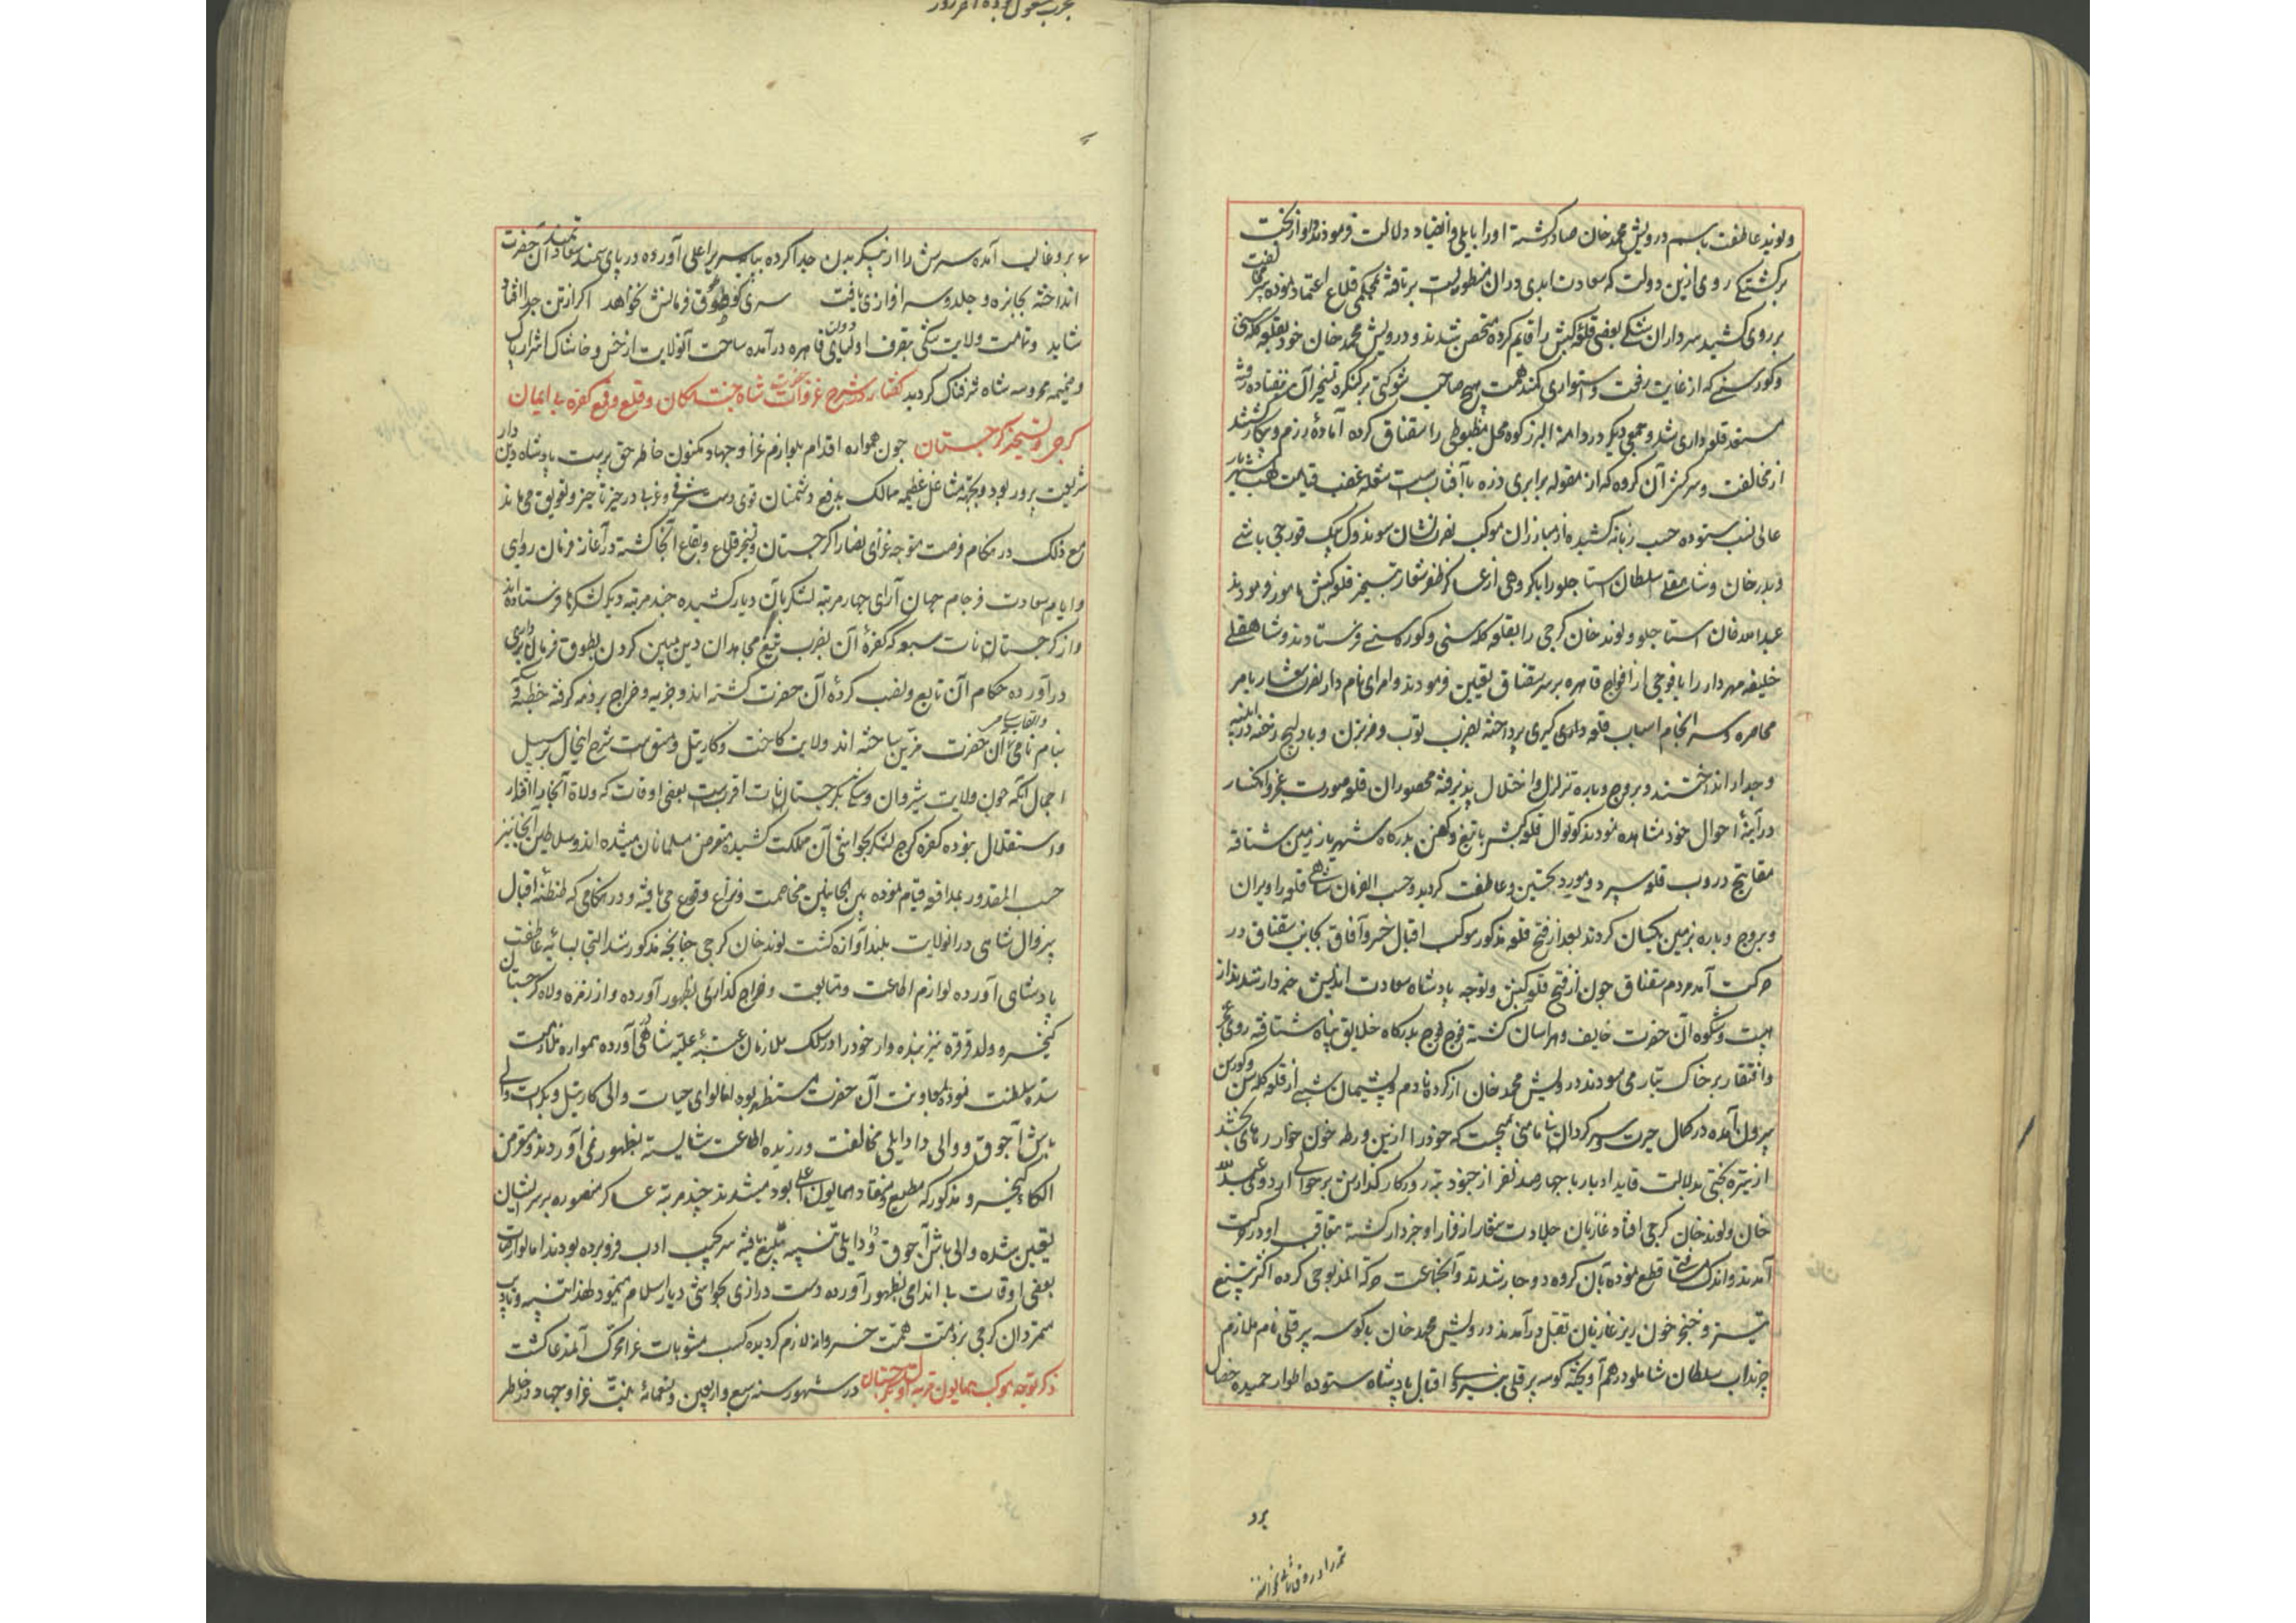 و نوید عاطفت باسم درویش محمد خان صادر گشته او را بایلی و انقیاد دلالت فرمودند و او از بخت
برگشتگی روی ازین دولت که سعادت ابدی در آن منظوریست برتافته بمحکمی قلاع اعتماد نموده سپر مخالفت
بر روی کشید سرداران شکی بعضی قلعه کیش را قایم کرده متحصن شدند و درویش محمد خان خود بقلعه کله‌سن
و کورسنی که از غایت رفعت و استواری کمند همت هیچ صاحب شوکتی بر کنگره تسخیر آن نیفتاده رفته
مستعد قلعه‌داری شد و جمعی دیگر در دامنه البرز کوه محل مظبوطی را سقناق کرده آماده رزم و پیکار گشتند
از مخالفت و سرکشی آن گروه که از مقوله برابری ذره با آفتابست شعله غضب قیامت لهب شهریار
عالی نسب ستوده حسب زبانه کشیده از مبارزان موکب نصرت نشان سوندوک بیک قورچی باشی
و بدر خان و شاه‌قلی سلطان استاجلو را با گروهی از عساکر ظفر شعار بتسخیر قلعه کیش مامور فرمودند
عبدالله خان استاجلو و لوند خان گرجی را بقلعه کله‌سنی و کورسنی فرستادند و شاهقلی
خلیفه مهردار را با فوجی از افواج قاهره بر سر سقناق تعیین فرمودند و امرای نامدار نصرت شعار بامر
محاصره و سرانجام اسباب قلعه کیری پرداخته بضرب توپ و ضربزن و بادلیج رخنه در ابنیه
و جدار انداختند و بروج و باره تزلزل و اختلال پذیرفته محصوران قلعه صورت عجز و انکسار
در آینهٔ احوال خود مشاهده نمودند کوتوال قلعه کیش با تیغ و کفن بدرگاه شهریار زمین شتافته
مفاتیح دروب قلعه سپرد و مورد تحسین و عاطفت گردید و حسب الفرمان شاهی قلعه را ویران
و بروج و باره بزمین یکسان کردند بعد از فتح قلعه مذکور موکب اقبال خسرو آفاق بجانب سقناق در
حرکت آمد مردم سقناق چون از فتح قلعه کیش و توجه پادشاه سعادت اندیش خبردار شدند از
هیبت و شکوه آن حضرت خایف و هراسان گشته فوج فوج بدرگاه خلایق پناه شتافته روی عجز
و افتقار بر خاک تیار می‌سودند درویش محمد خان از کرده نادم و پشیمان شبی از قلعه کله‌سن و کورسن
بیرون آمده در کمال حیرت سرگردان مامنی میجست که خود را ازین ورطه خون خوار رهایی بخشد
از تیره بختی بدلالت قاید ادبار با چهارصد نفر از جنود تیره روزگار گذارش بر حوالی اردوی عبدالله
خان و لوند خان گرجی افتاد غازیان جلادت شعار از فرار او خبردار گشته متعاقب او در حرکت
آمدند و اندک مسافتی قطع نموده بآن گروه دوچار شدند و آنجماعت حرکه المذبوحی کرده اکثر بتیغ
تیز و خنجر خون ریز غازیان بقتل درآمدند درویش محمد خان با کوسه پیر قلی نام ملازم
چرنداب سلطان شاملو درهم آویخته کوسه پیر قلی بنیروی اقبال پادشاه ستوده اطوار حمیده خصال
برد
برو غالب آمده سرش را از پیکر بدن جدا کرده بپایه سریر اعلی آورده در پای سمند سعادتمند آن حضرت
انداخته بجایزه و جلدو سرافرازی یافت سری کو طوق فرمانش نخواهد اگر از تن جدا افتاد
شاید و تمامت ولایت شکی بتصرف اولیای دولت قاهره درآمده ساحت آنولایت از خس و خاشاک اشرار پاک
و ضمیمه محروسه شاه شرفناک گردید گفتار در شرح غزوات حضرت شاه جنت مکان و قلع و قمع کفره بی ایمان
گرجی و تسخیر گرجستان چون همواره اقدام بلوازم غزا و جهاد مکنون خاطر حق پرست پادشاه دین دار
شریعت پرور بود و بجهة مشاغل عظیمه ممالک بدفع دشمنان قوی دست شرقی و غربی در حیز تاخیر و تعویق می‌ماند
مع ذلک در هنگام فرصت متوجه غزای نصارا گرجستان و تسخیر قلاع و بقاع آنجا گشته در آغاز فرمان روای
و ایام سعادت فرجام جهان آرای چهار مرتبه لشکر بآن دیار کشیده چند مرتبه دیگر لشکرها فرستاده اند
و از گرجستانات سبعه که کفرهٔ آن بضرب تیغ مجاهدان دین مبین گردن بطوق فرمان برداری
درآورده حکام آن تابع و نصب کردهٔ آن حضرت گشته اند و جزیه و خراج بر ذمه گرفته خطبه و سکه
بنام نامی و القاب سامی آن حضرت مزین ساخته اند ولایت کاخت و کارتیل و مسق است شرح این حال بر سبیل
اجمال آنکه چون ولایت شیروان و شکی بگرجستانات اقربست بعضی اوقات که ولاة آنجا را اقتدار
و استقلال نبوده کفره گرج لشکر بحواشی آن مملکت کشیده متعرض مسلمانان میشده اند و سلاطین آنجا نیز
حسب المقدور بمدافعه قیام نموده بین الجانبین مخاصمت و نزاع وقوع می‌یافته و در هنگامی که طنطنهٔ اقبال
بیزوال شاهی در آنولایت بلند آوازه گشت لوند خان گرجی چنانچه مذکور شد التجا بسایهٔ عاطفت
پادشاهی آورده لوازم اطاعت و متابعت و خراج گذاری بظهور آورده و از زمره ولاة گرجستان
کیخسرو ولد قرقره نیز بنده وار خود را در سلک ملازمان عتبهٔ علیه شاهی آورده همواره ملازمت
سده سلطنت نموده بمعاونت آن حضرت مستظهر بود اما لوای حیات والی کارتیل و بگرات والی
باش آچوق و والی دادایلی مخالفت ورزیده اطاعت شایسته بظهور نمی آوردند و متعرض
الکاء کیخسرو مذکور که مطیع و منقاد همایون اعلی بود میشدند چند مرتبه عساکر منصوره بر سر ایشان
تعیین شده والی باش آچوق و دادایلی تنبیه بلیغ یافته سر بجیب ادب فرو برده بودند اما لوارصات
بعضی اوقات بی اندامی بظهور آورده دست درازی بحواشی دیار اسلام مینمود لهذا تنبیه و تادیب
متمردان گرجی بر ذمت همت خسروانه لازم گردیده کسب مثوبات غزا محرک آن مدعا گشت
ذکر توجه موکب همایون مرتبه اول بگرجستان در شهور سنه سبع و اربعین و تسعمائه بنیت غزا و جهاد در خاطر